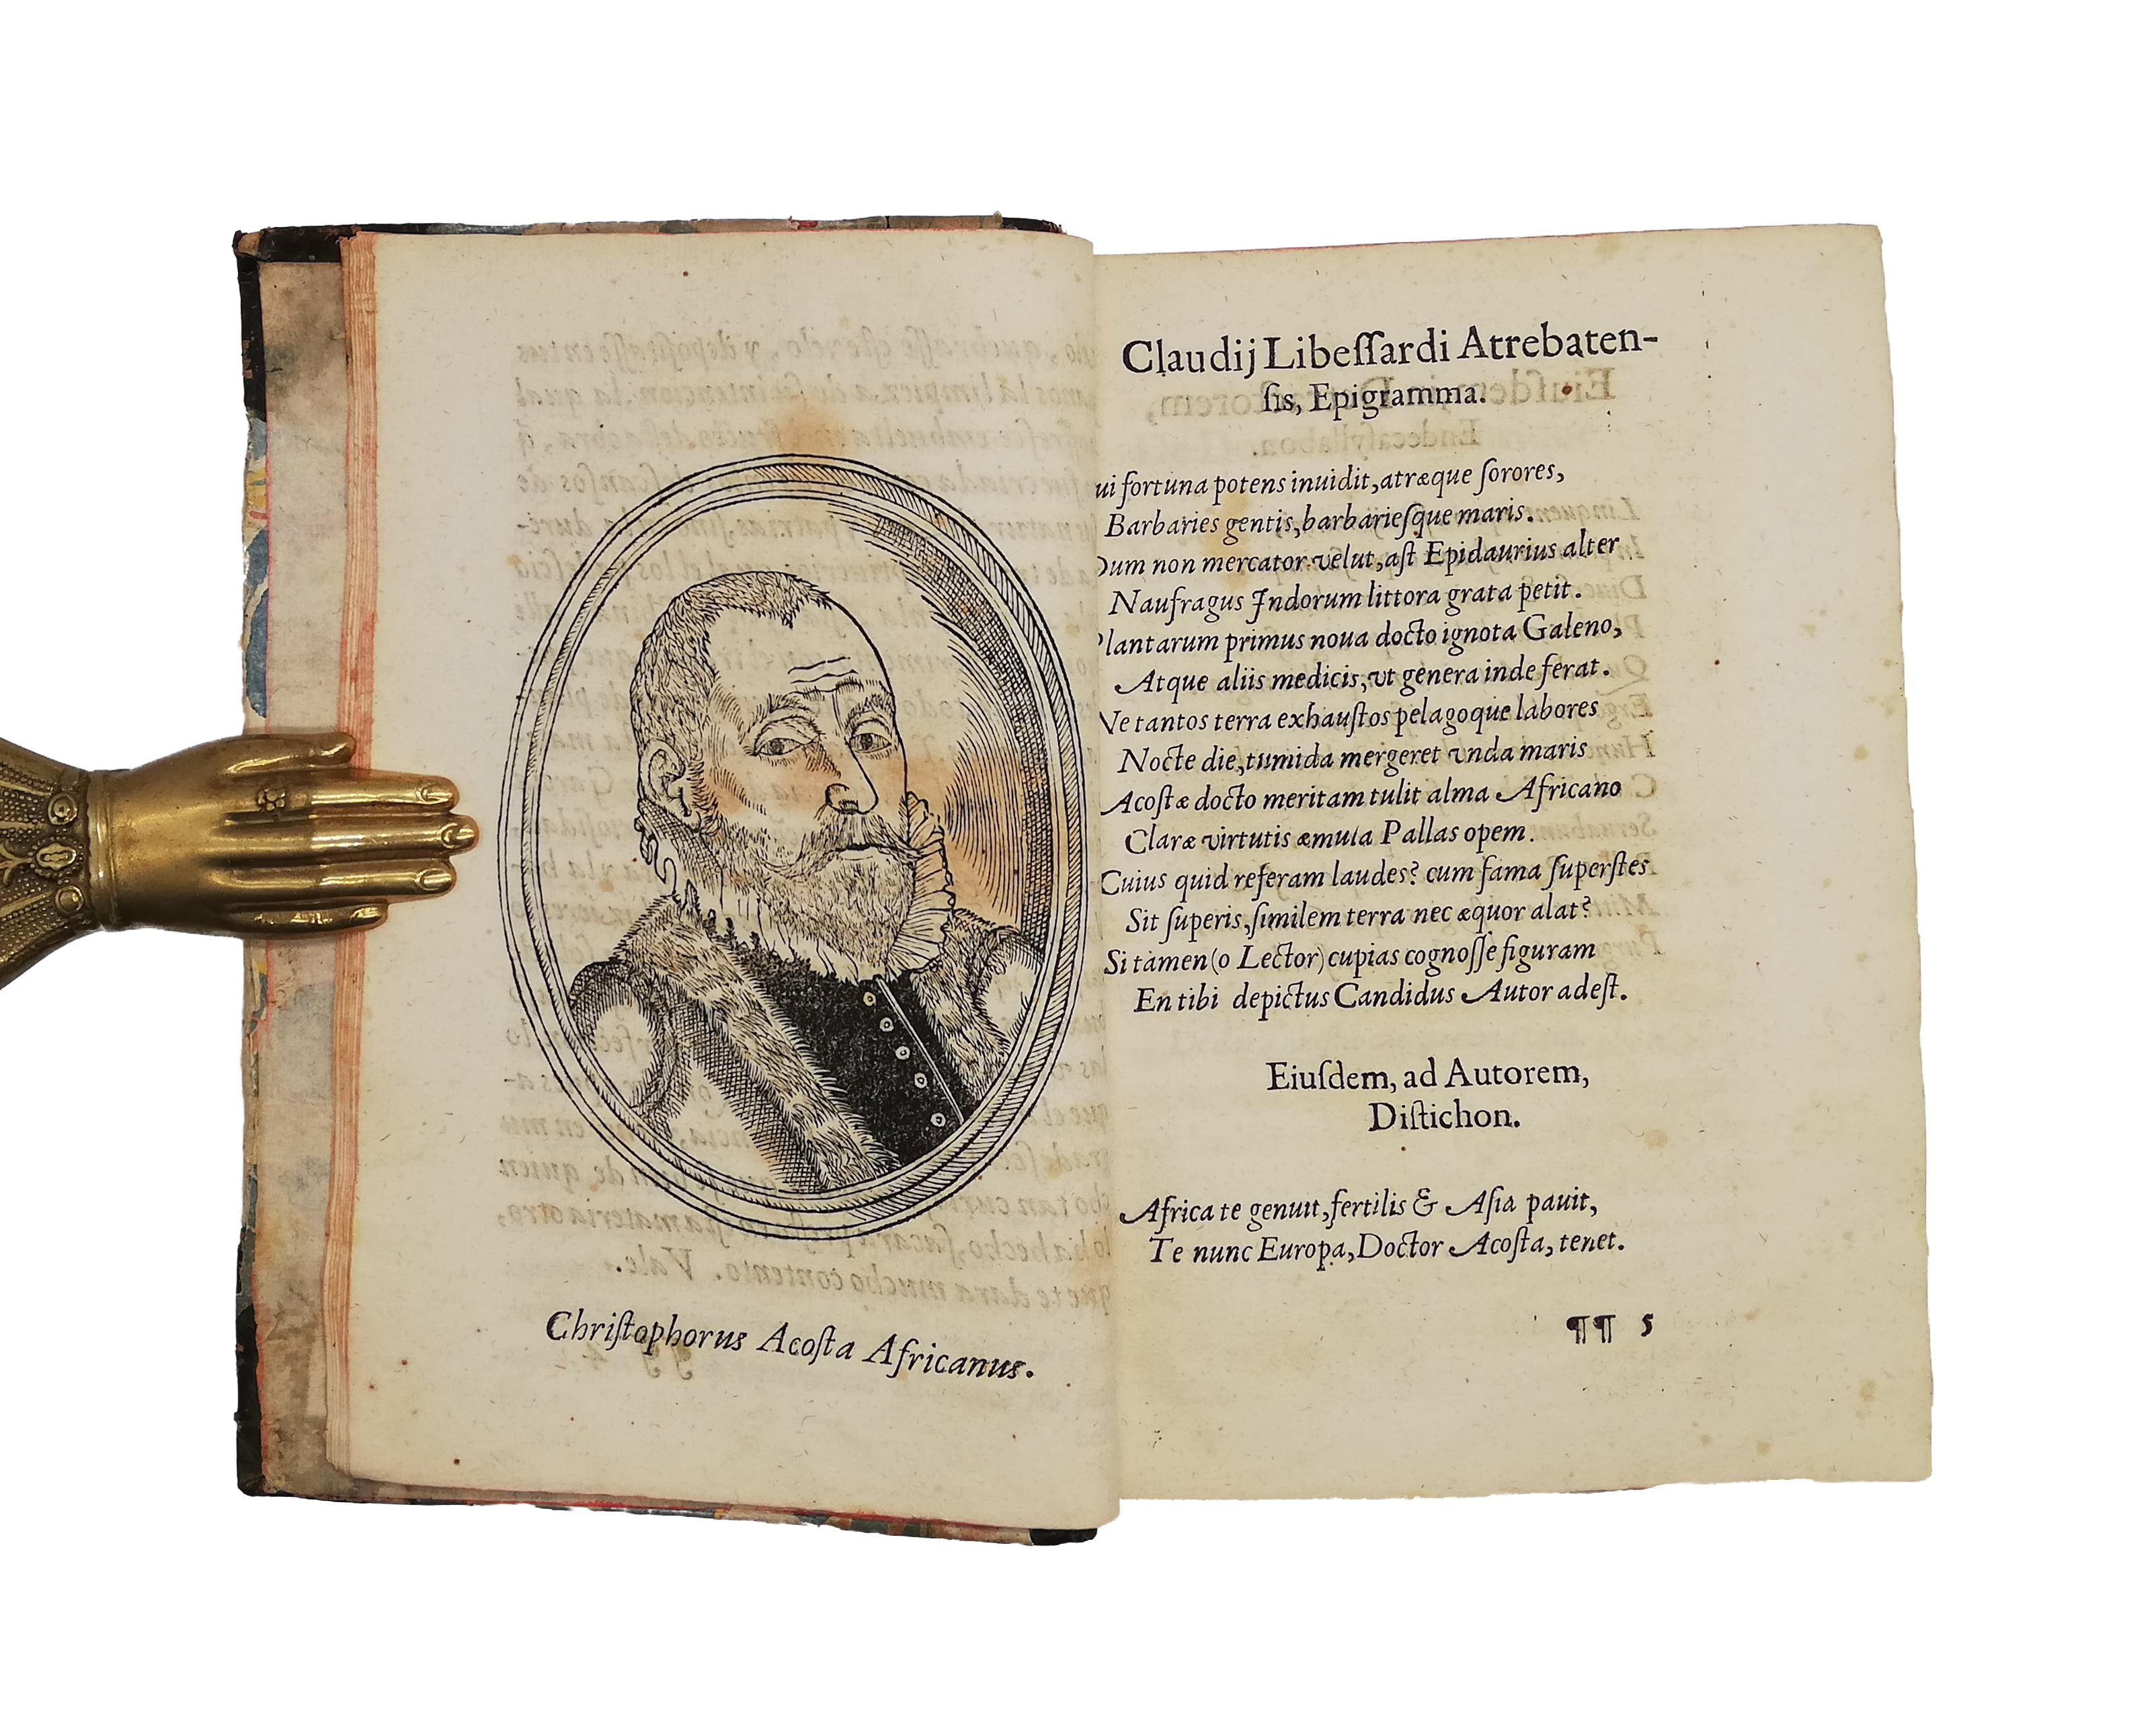 Chriſtophorus Acoſta Africanus.
Claudij Libeſſardi Atrebaten-
ſis, Epigramma.
fortuna potens inuidit, atræque ſorores,
Barbaries gentis, barbarieſque maris.
Dum non mercator velut, aſt Epidaurius alter
Naufragus Indorum littora grata petit.
Plantarum primus noua docto ignota Galeno,
Atque aliis medicis, vt genera inde ferat.
Ne tantos terra exhauſtos pelagoque labores
Nocte die, tumida mergeret vnda maris
Acoſtæ docto meritam tulit alma Africano
Claræ virtutis æmula Pallas opem.
Cuius quid referam laudes? cum fama ſuperſtes
Sit ſuperis, ſimilem terra nec æquor alat?
Si tamen (o Lector) cupias cognoſſe figuram
En tibi depictus Candidus Autor adeſt.
Eiuſdem, ad Autorem,
Diſtichon.
Africa te genuit, fertilis & Aſia pauit,
Te nunc Europa, Doctor Acoſta, tenet.
¶¶ 5